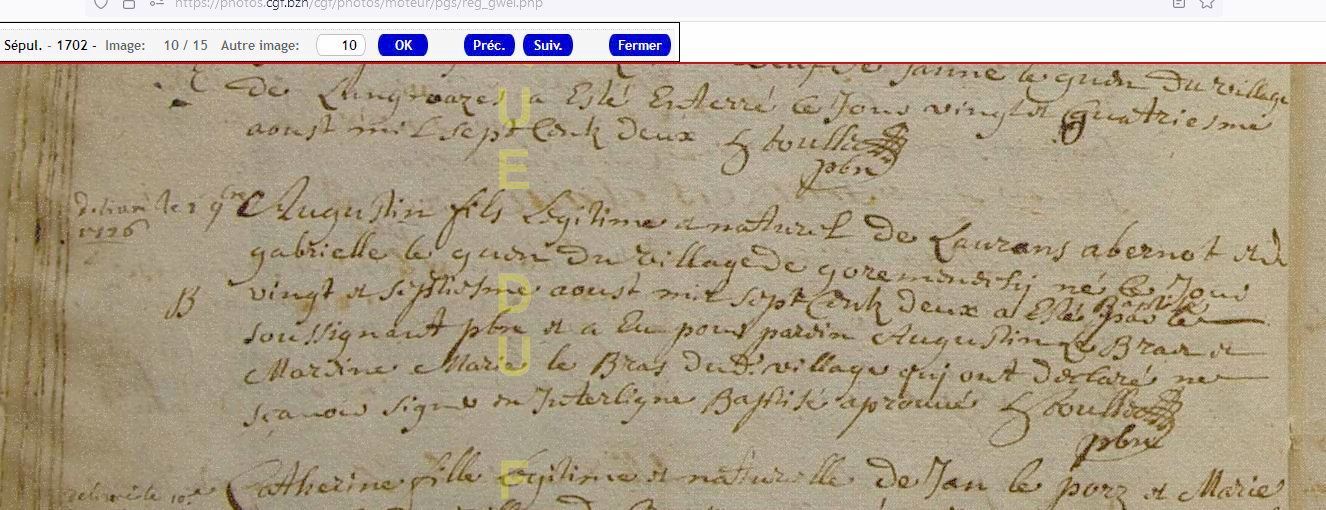 https://photos.cgf.bzh/cgf/photos/moteur/pgs/reg_gwel.php
Sépul. - 1702 - Image: 10 / 15 Autre image: 10 OK Préc. Suiv. Fermer
Janne le guen du village
De a Esté Enterré le Jour vingt et quatriesme
aoust mil sept Cent deux
pbre
delivré le 9bre
1726
Augustin fils legitime et naturel de Laurans abernot et de
gabrielle le guen du village de goremendehy né le Jour
B
vingt et septiesme aoust mil sept Cent deux a Esté Par le
soussignant pbre et a Eu pour parein Augustin le Bras et
Mareine Marie le Bras dud. village qui ont declaré ne
scavoir signer en Interligne Baptisé aprouvé
pbre
delivré le
Catherine fille legitime et naturelle de Jan le porz et Marie
U
E
D
U
F